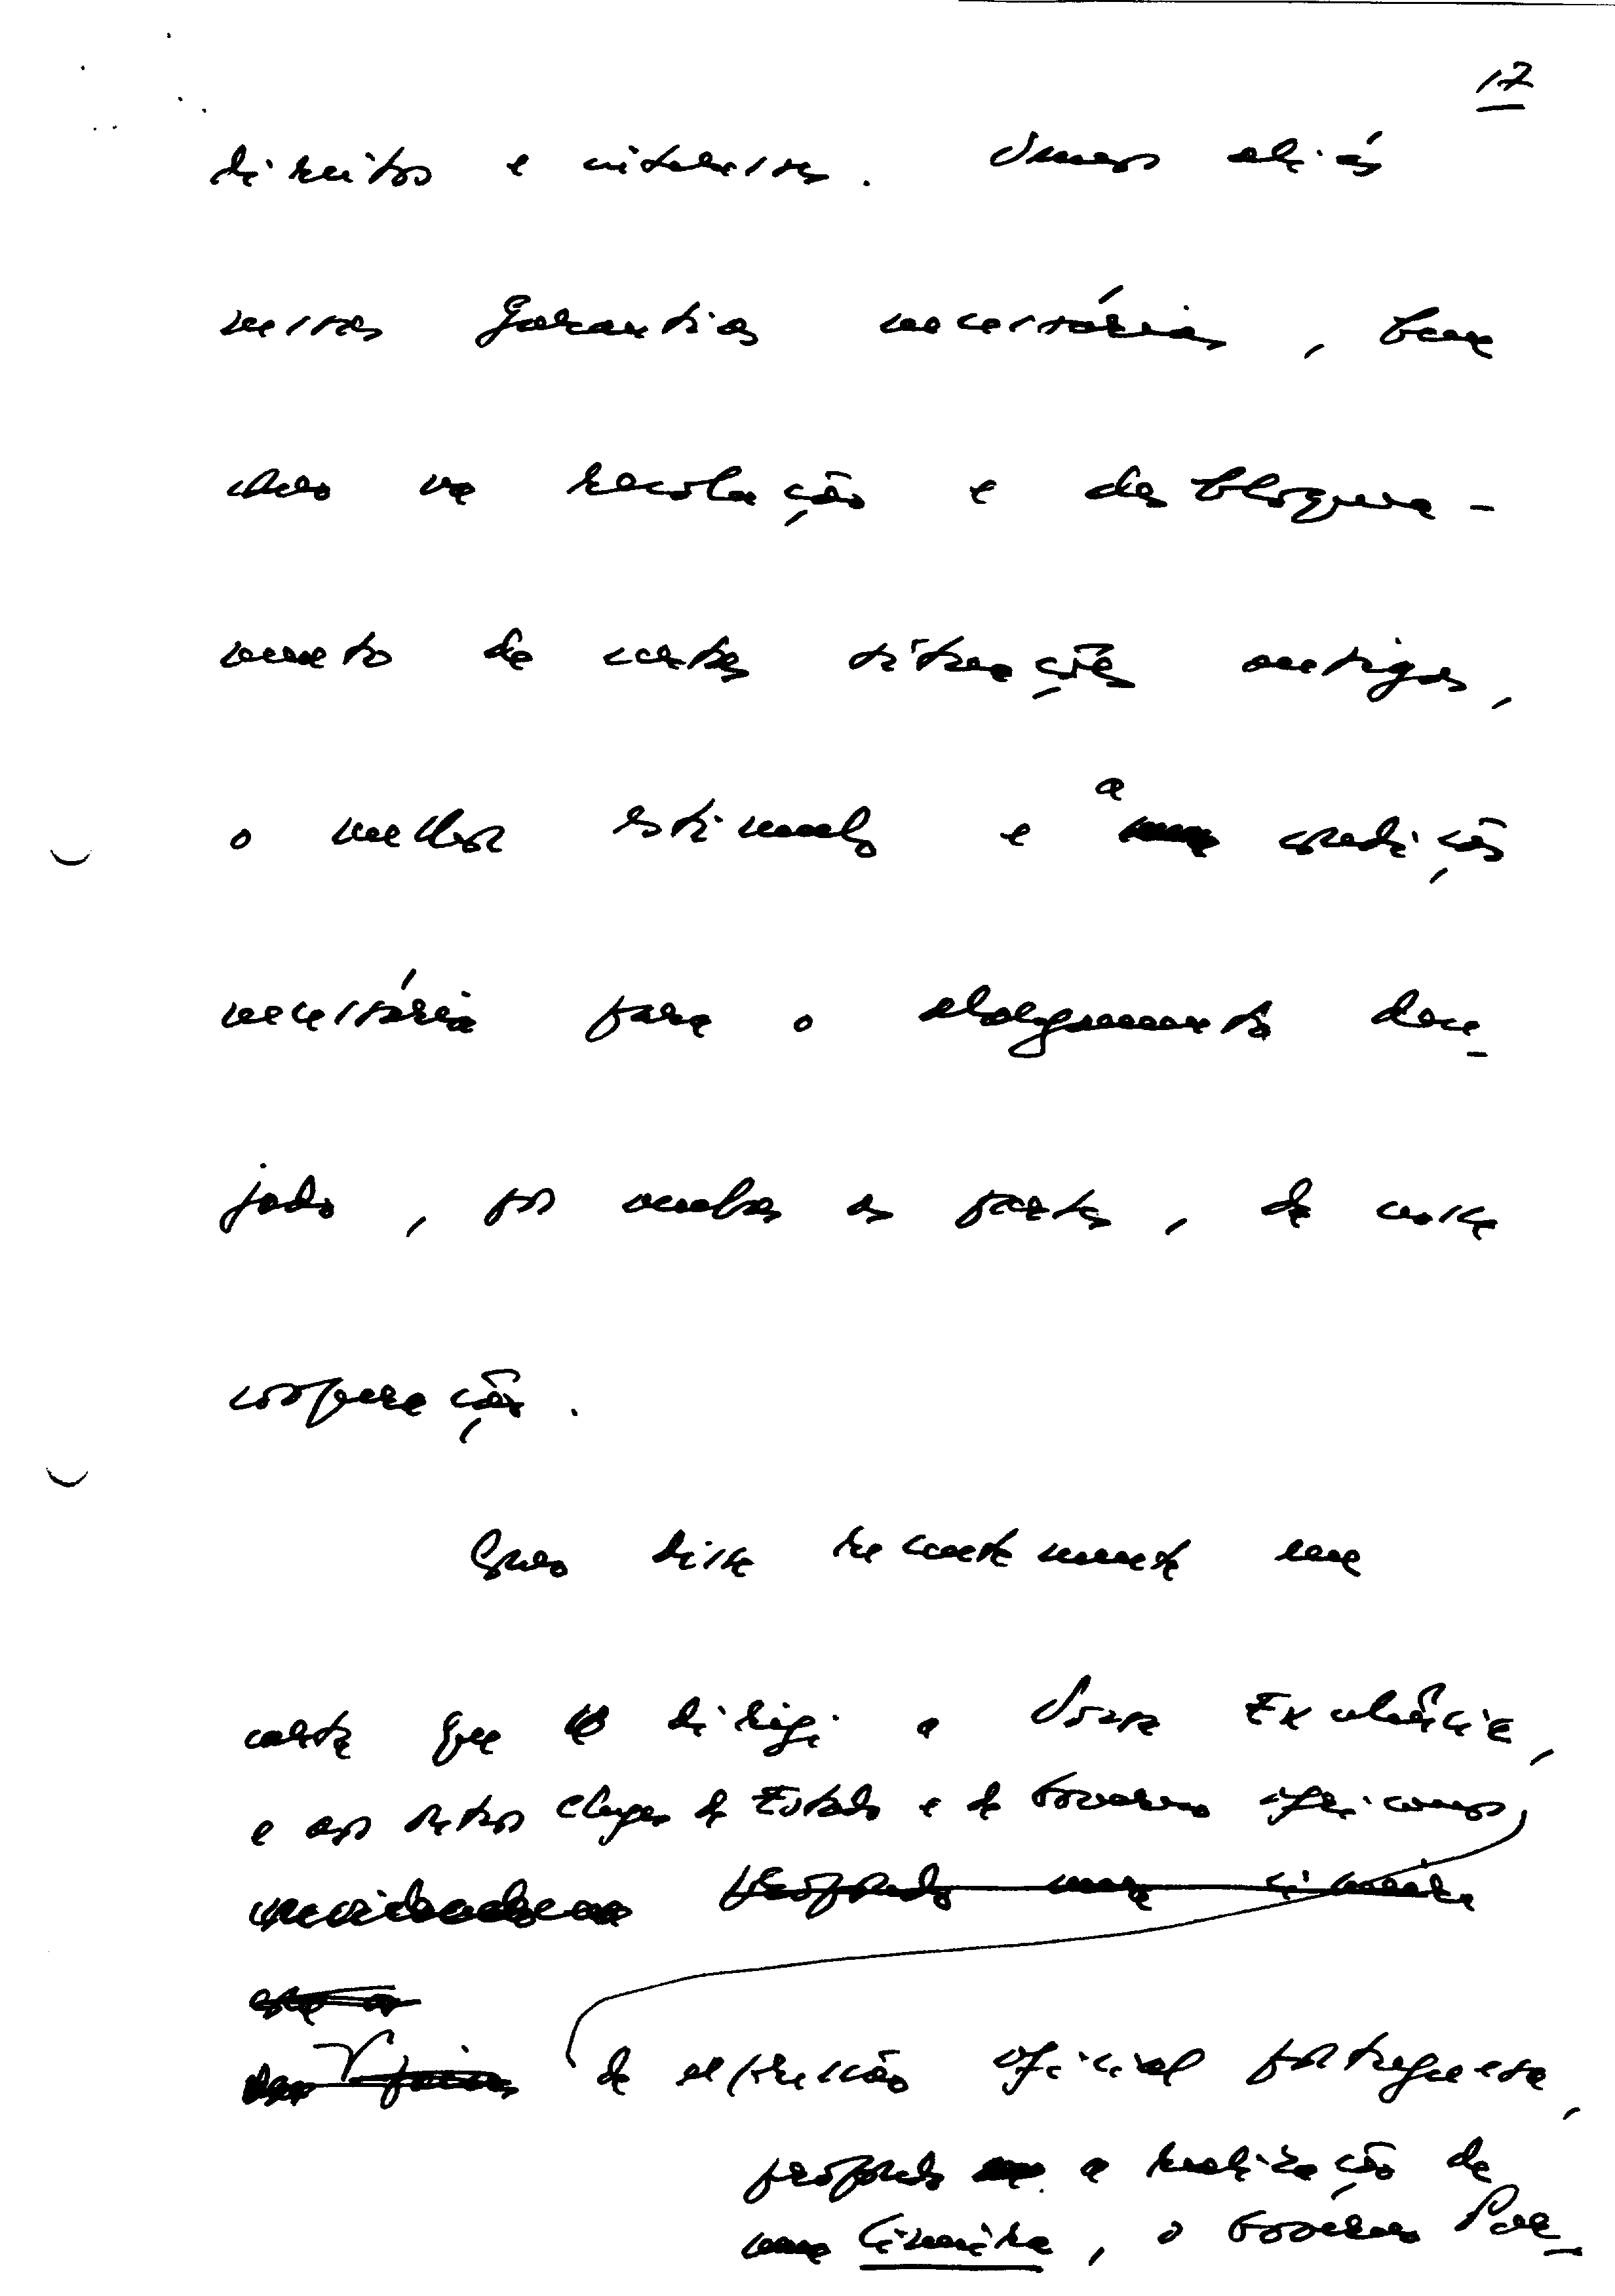 17
direitos e interesses. Vemos aliás
nessas garantias necessárias, bem
como na resolução e desbloquea-
mento de certas situações antigas,
o melhor estímulo e a condição
necessária para o alargamento dese-
jado, por ambas as partes, da nossa
cooperação.
Como disse recentemente em
carta que dirigi a Vossa Excelência,
e aos outros Chefes de Estado e de Governo africanos,
propondo uma cimeira
de expressão oficial portuguesa,
propondo a realização de
uma Cimeira, o Governo Por-